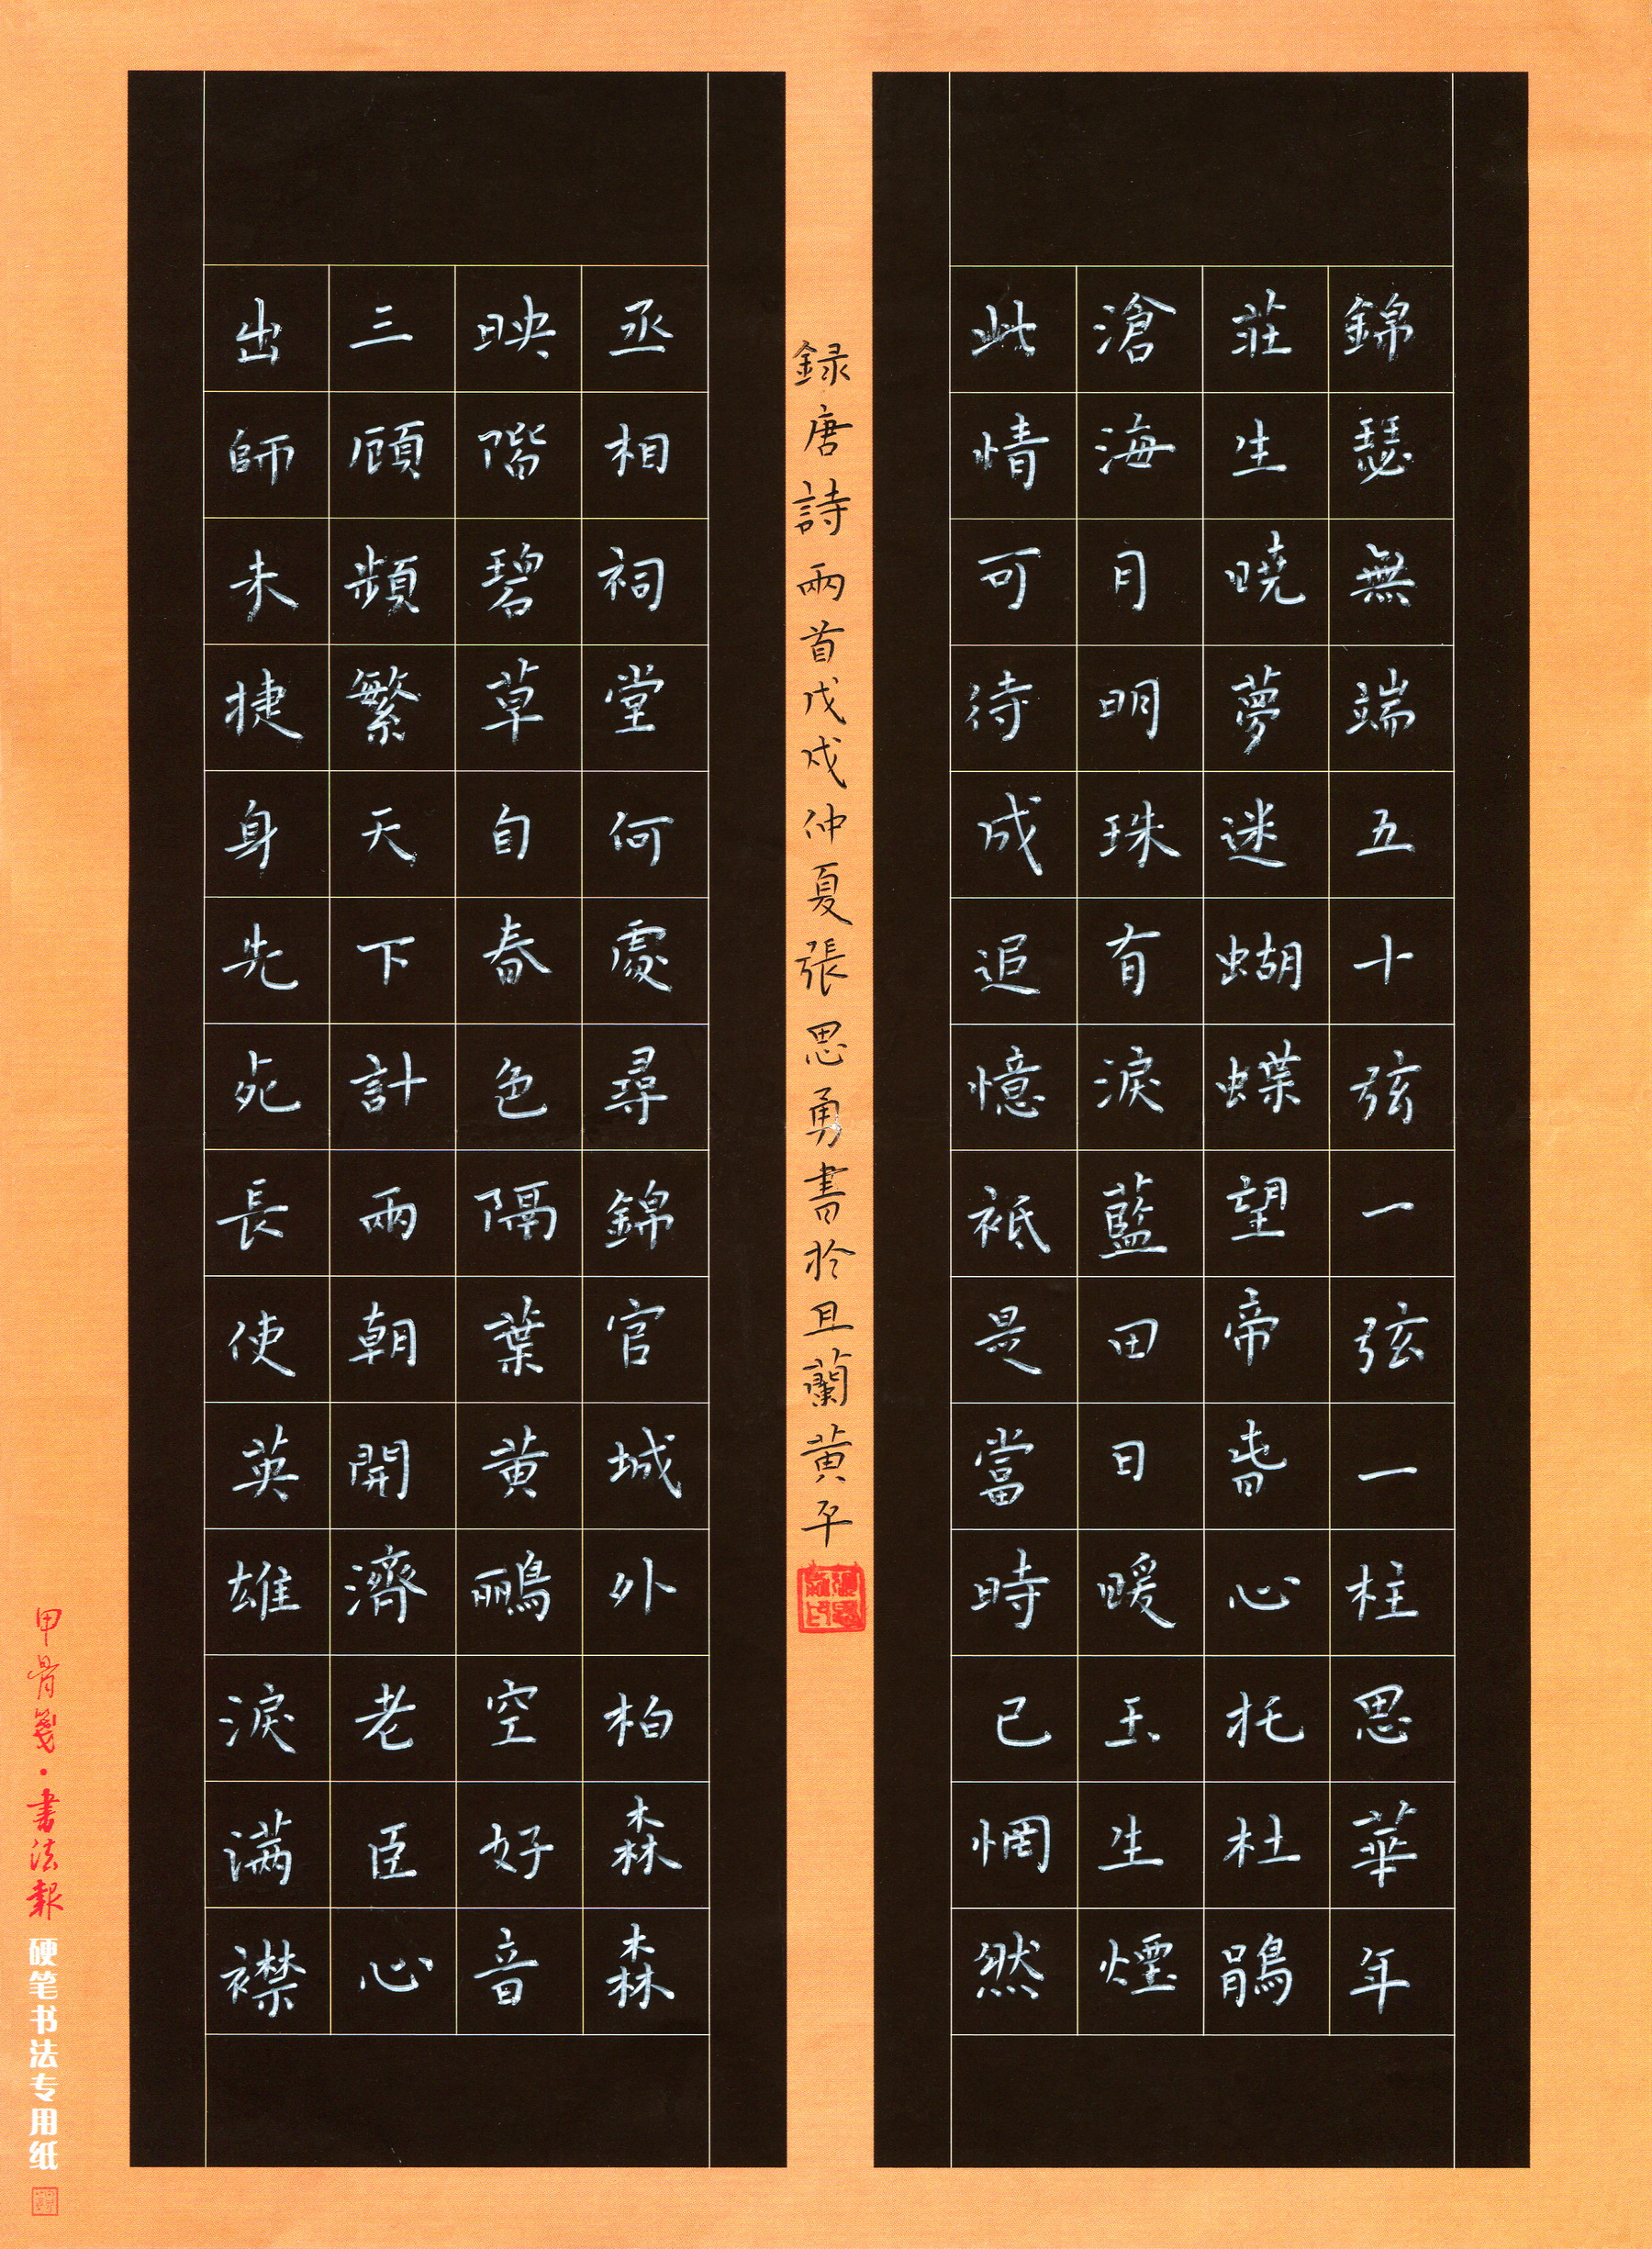 錦瑟無端五十弦一弦一柱思華年
莊生曉夢迷蝴蝶望帝春心托杜鵑
滄海月明珠有淚藍田日暖玉生煙
此情可待成追憶祗是當時已惘然
丞相祠堂何處尋錦官城外柏森森
映階碧草自春色隔葉黃鸝空好音
三顧頻繁天下計兩朝開濟老臣心
出師未捷身先死長使英雄淚满襟
録唐詩兩首戊戌仲夏張思勇書於且蘭黃平
甲骨箋·書法報
硬笔书法专用纸